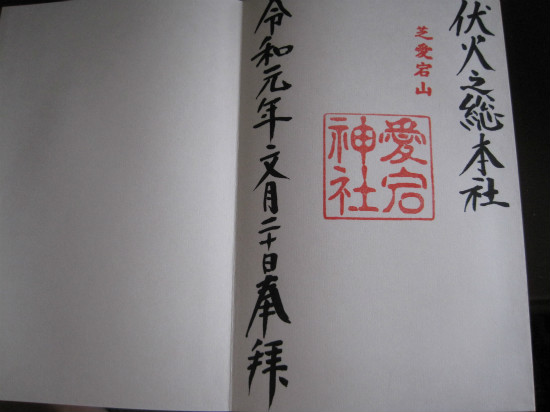 伏火之総本社
芝愛宕山
愛宕
神社
令和元年文月二十日奉拝